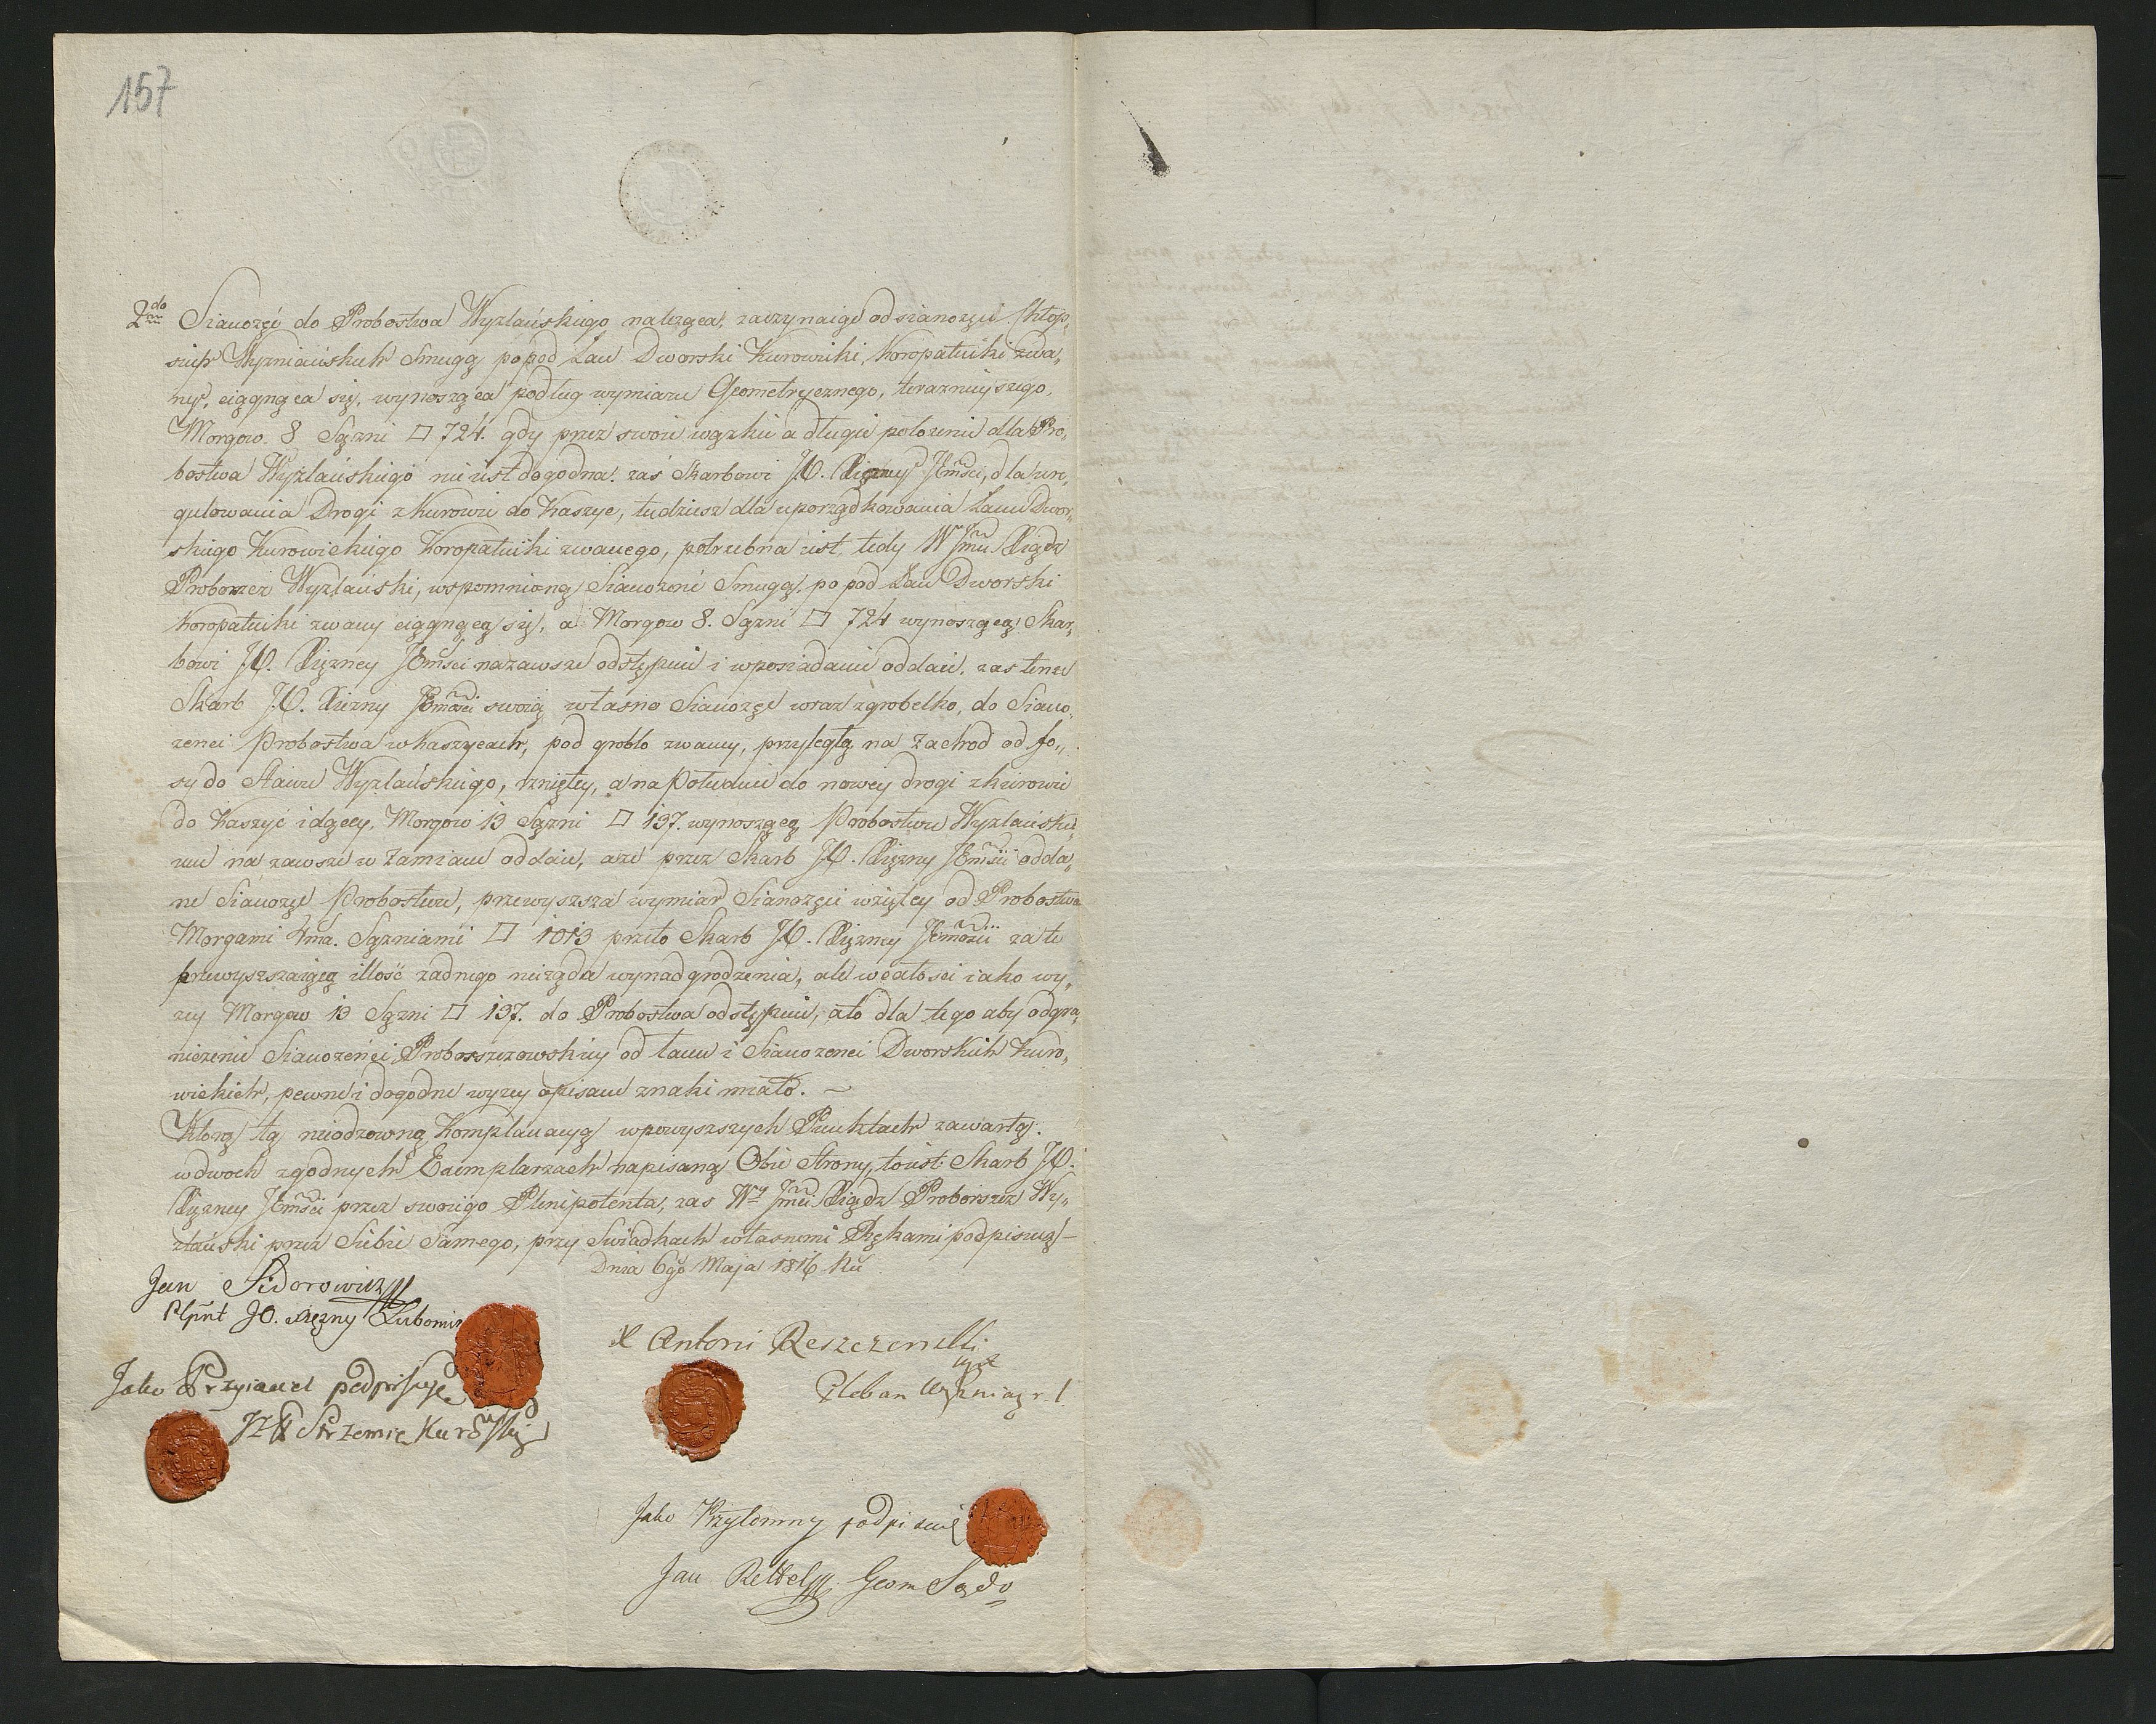 157
2do Sianozęć do Probostwa Wyzlańskiego należąca, zaczynaiąc od sianozęci Chłop,,
skich Wyzniańskich Smugą popod Łan Dworski Kurowicki, Koropatnicki zwa,,
ny, ciągnąca się, wynosząca podług wymiaru Geometrycznego, teraznieyszego,
Morgow 8 Sązni □ 724. gdy przez swoie wązkie a długie położenie dla Pro,,
bostwa Wyzlańskiego nie iest dogodna. zaś Skarbowi J.O. Xiężney JEmści, dla ure,,
gulowania Drogi z Kurowic do Kaszyc, tudziesz dla uporządkowania Łanu Dwor,,
skiego Kurowickiego Koropatnicki zwanego, potrzebna iest, tedy W Jmci Xiądz
Proboszcz Wyzlański, wspomnioną Sianozenć Smugą, po pod Łan Dworski
Koropatnicki zwany ciągnącą się, a Morgow 8. Sązni □ 724 wynoszącą Skar,,
bowi J.O. Xiężney JEmści nazawsze odstępuie i w posiadanie oddaie. zas tenze
Skarb J.O. Xiezny JEmości swoią własno Sianozęć wraz z grobelko, do Siano,,
zenci Probostwa w Kaszycach, pod groblo zwaney, przyległą na Zachod od fo,,
sy do Stawu Wyzlańskiego, rznięty, a na Południe do nowey drogi z Kurowic
do Kaszyć idący, Morgow 13 Sązni □ 137. wynoszącą Probostwu Wyzlańskie,,
mu na zawsze w Zamianę oddaie, a ze przez Skarb J.O. Xięzny JEmści odda,,
ne Sianozęć Probostwu, przewyszsza wymiar Sianozęci wziętey od Probostwa
Morgami 4ma. Sązniami □ 1013 przeto Skarb J.O. Xięzney JEmości za te
przewyszszaiącą illość zadnego nieząda wynadgrodzenia, ale w całosci iako wy,,
zey Morgow 13 Sązni □ 137. do Probostwa odstępuie, a to dla tego aby odgra,,
niczenie Sianozeńci Proboszczowskiey od łanu i Sianozenci Dworskich Kuro,,
wickich, pewne i dogodne wyzey opisane znaki miało. ~
Ktorą tą nieodzowną Komplanacyą w powyszszych Punktach zawartą.
w dwoch zgodnych Exemplarzach napisaną Obie Strony, to iest Skarb J.O.
Xięzney JEmści przez swoiego Plenipotenta, zas Wy Jmci Xiądz Proboszcz Wy,,
zlański przez Siebie Samego, przy Swiadkach własnemi Rękami podpisuią —
Dnia 6go Maja 1816 Ru
Jan Sidorowicz
Plpnt JO. Xiężny Lubomir
X Antoni Reszczenski
Pleban
Jako Przyiaciel podpisuję
Strzemię Kurowski
Jako Przytomny podpisuię
Jan Rettel Geom Sądo